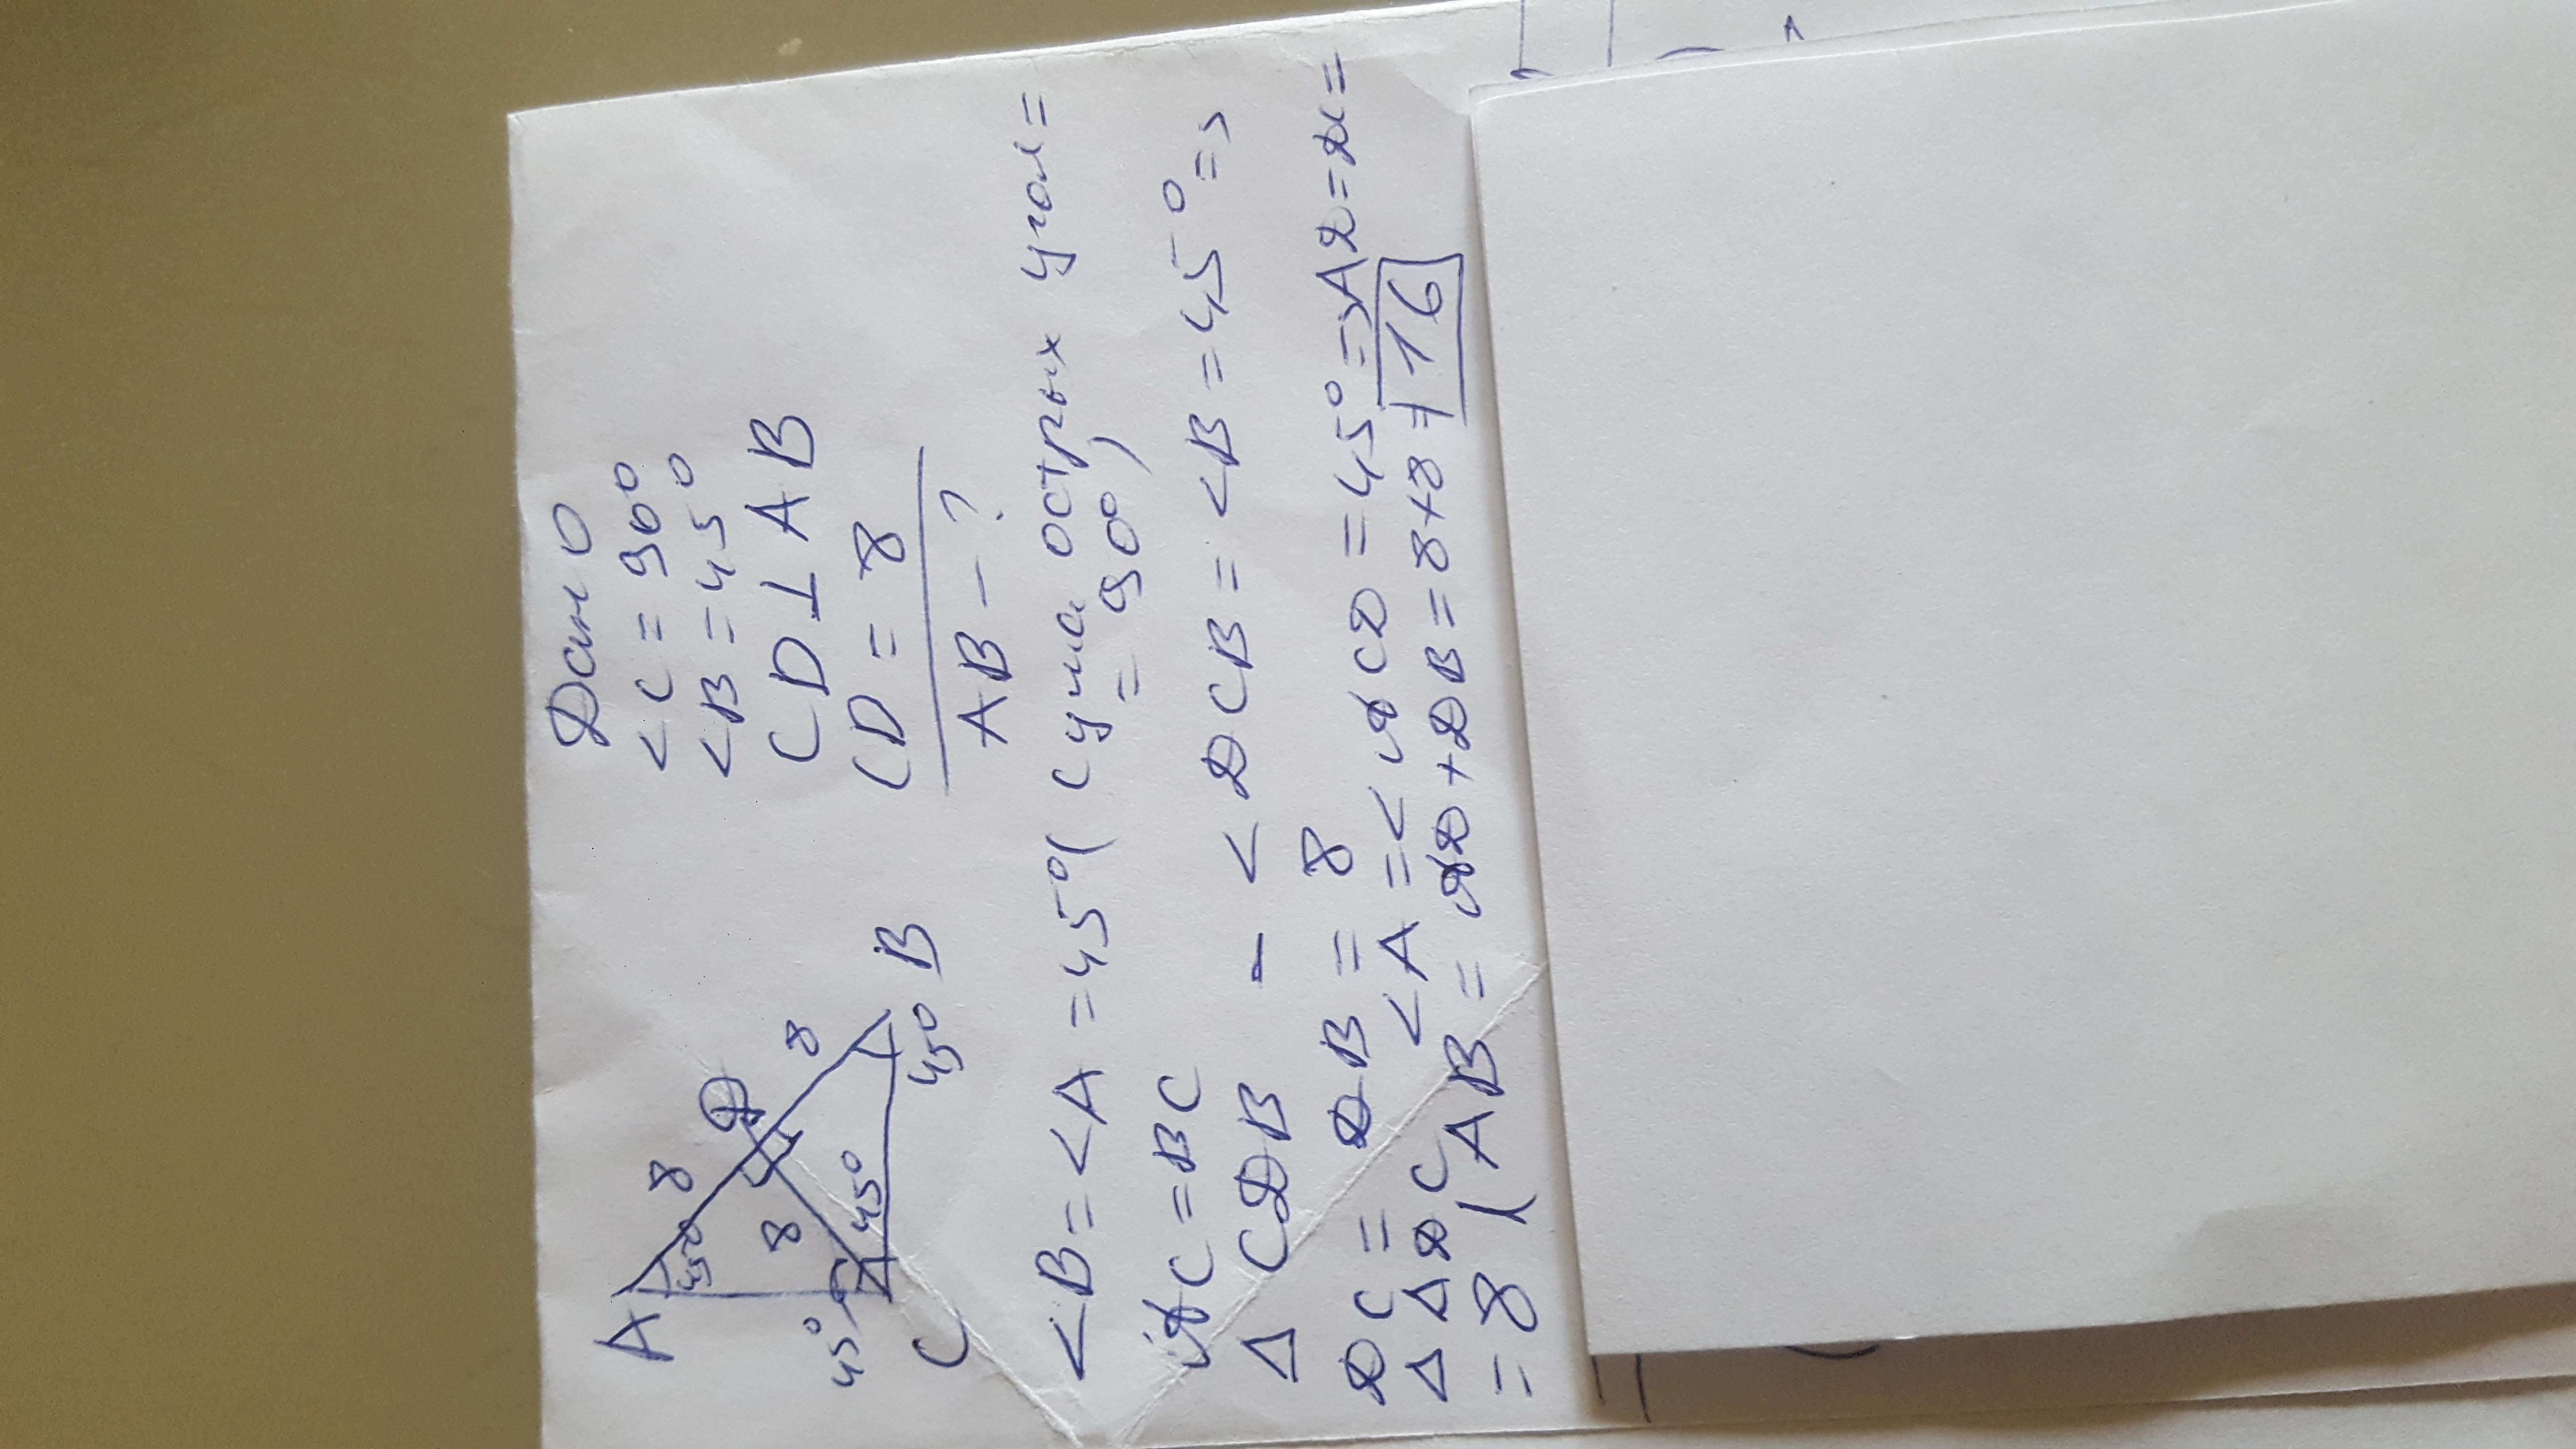 A
45°
8
D
8
8
45°
45°
45°
C
B
Дано
<C = 90°
<B = 45°
CD⊥AB
CD = 8
AB - ?
<B = <A = 45° ( сума острых угол =
= 90°)
AC = BC
Δ CDB - < DCB = <B = 45° =>
DC = DB = 8
Δ ADC <A = < ACD = 45° => AD = DC =
= 8 ( AB = AD + DB = 8+8 = 16